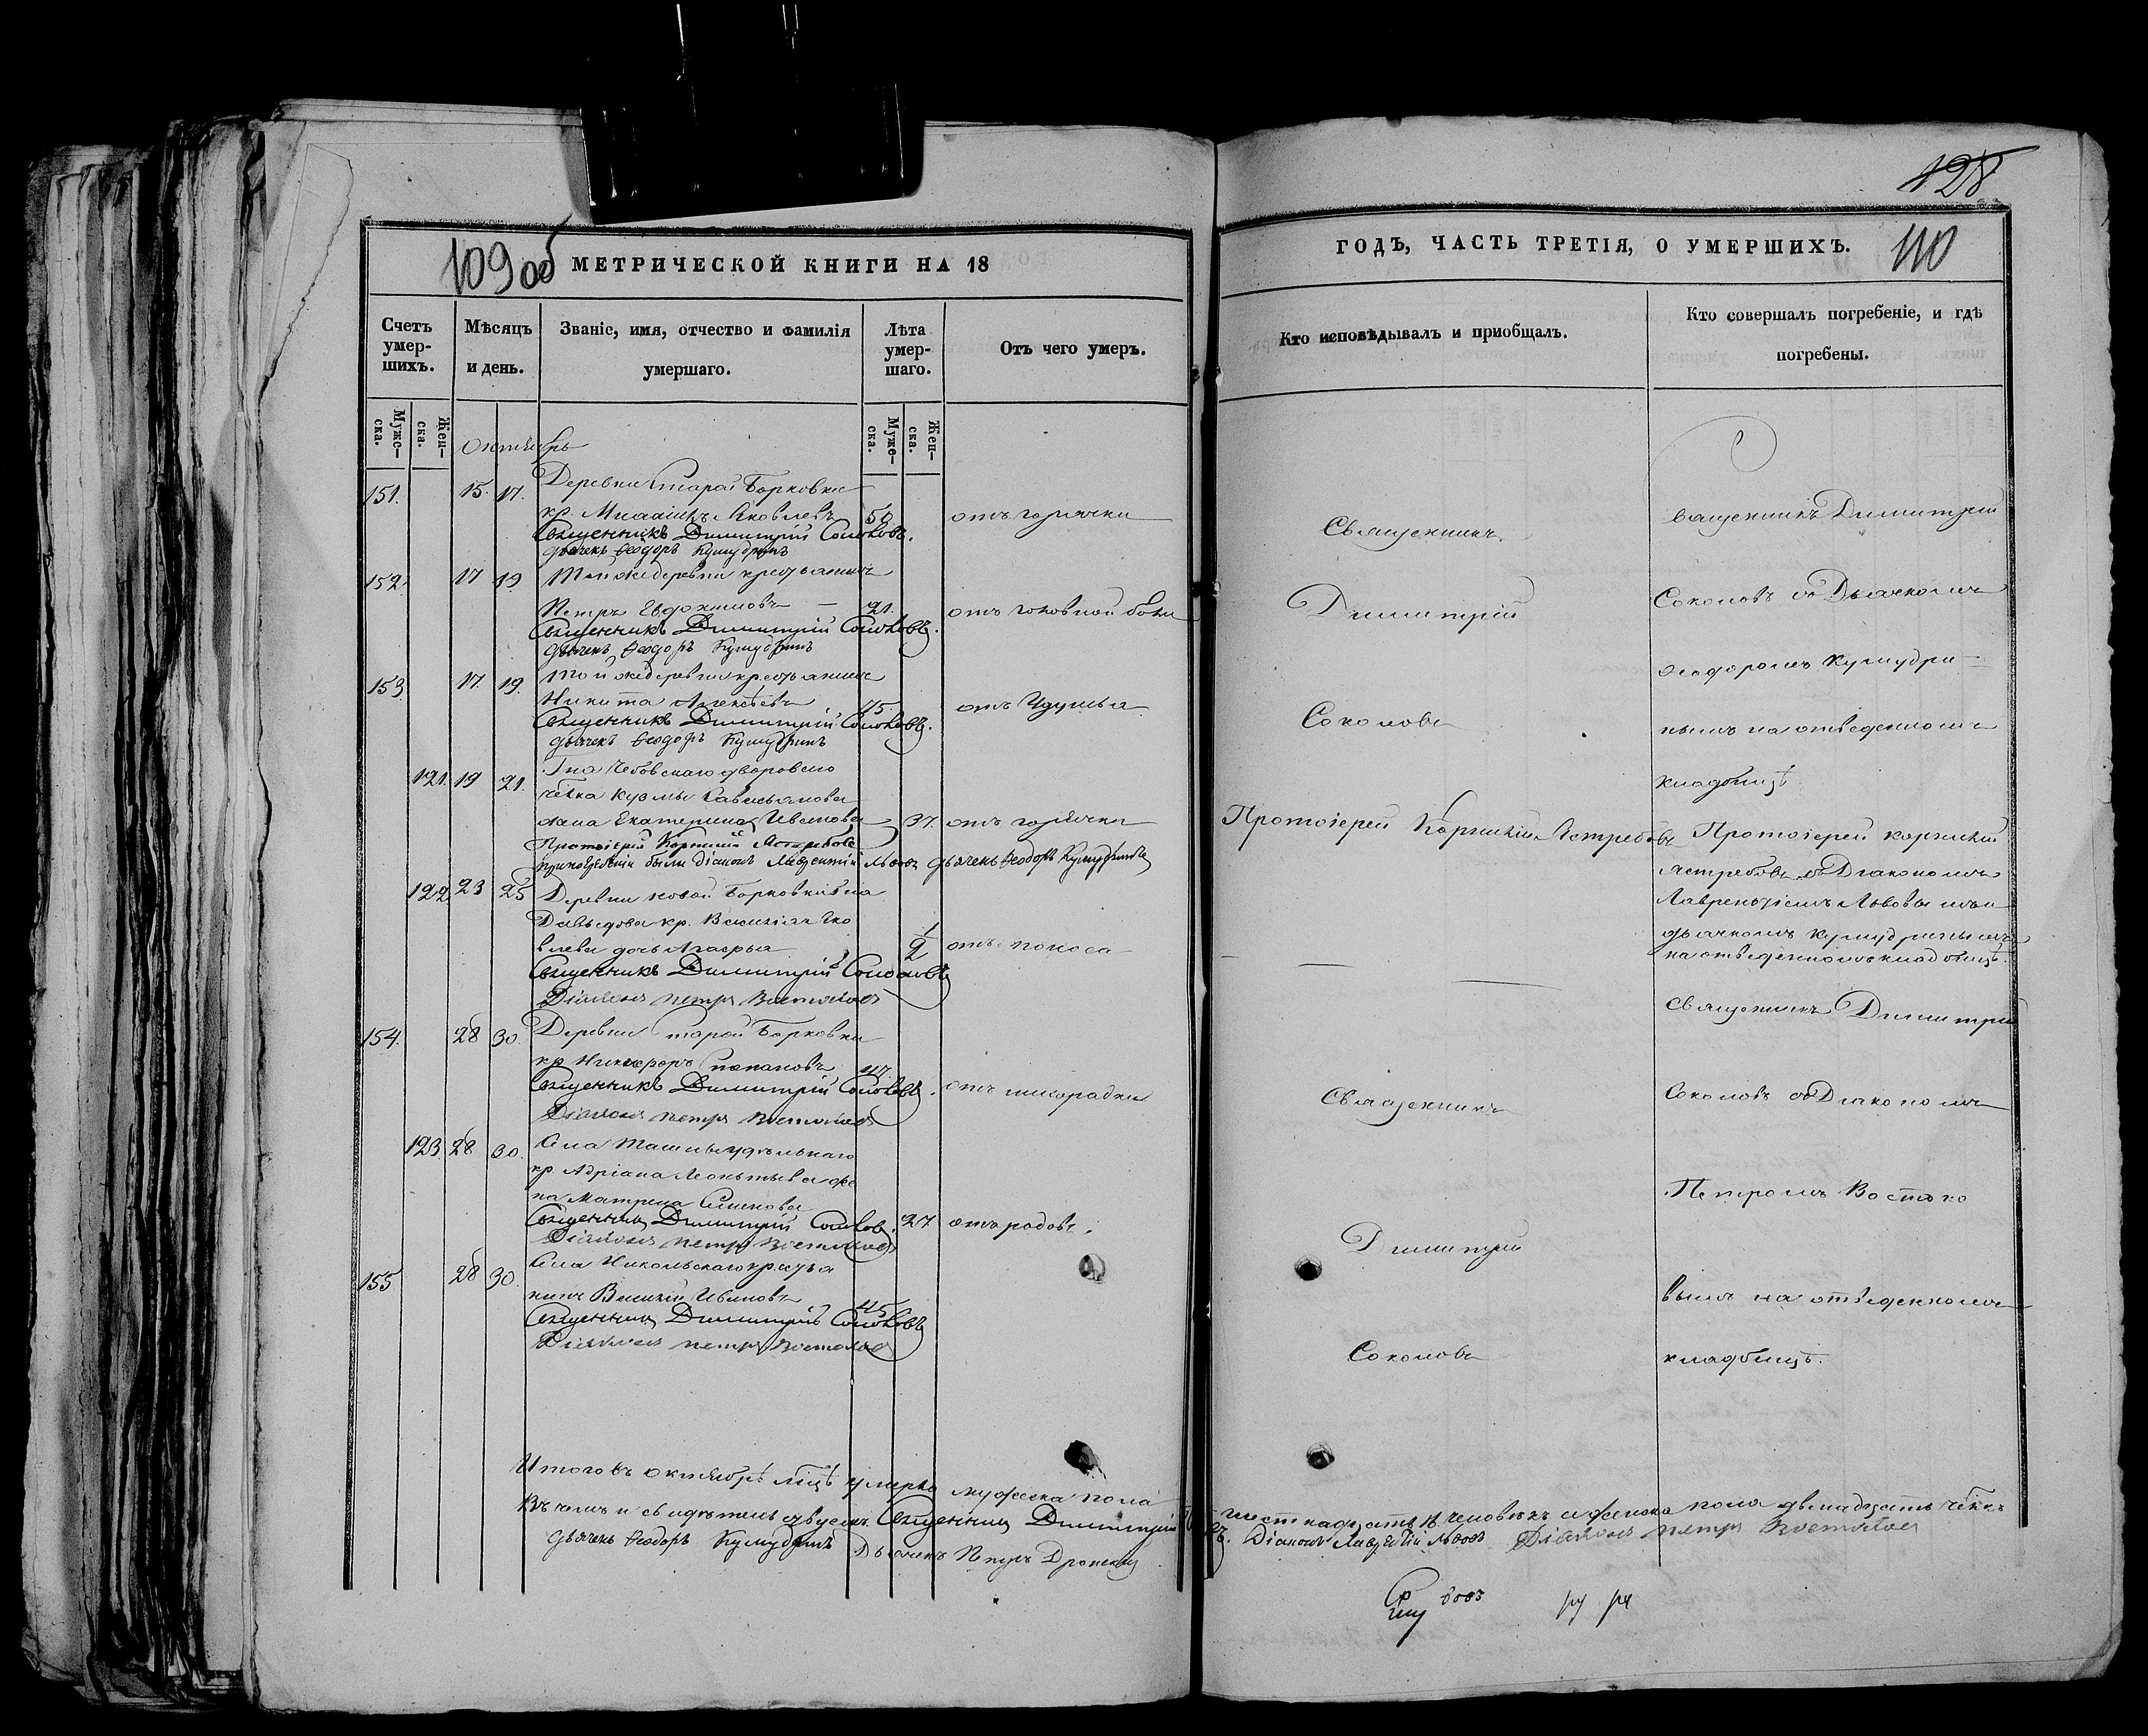 109 об
МЕТРИЧЕСКОЙ КНИГИ НА 18
Счетъ умер-шихъ.
Мѣсяцъ и день.
Званіе, имя, отчество и фамилія умершаго.
Лѣта умер-шаго.
Отъ чего умеръ.
Муже-ска.
Жен-ска.
Муже-ска.
Жен-ска.
Октябрь
151. 15. 17. Деревни Старой Борковки
кр. Яковлевъ 50 отъ горячки
Священникъ Димитрій Соколовъ.
дьячекъ Ѳеодоръ
152. 17 19 Той же деревни крестьянинъ
Петръ Евдокимовъ 21. отъ головной боли
Священникъ Димитрій Соколовъ.
дьячекъ Ѳеодоръ
153 17. 19. Той же деревни крестьянинъ
Никита Алексѣевъ 75 отъ удушья
Священникъ Димитрій Соколовъ.
дьячекъ Ѳеодоръ
121. 19 21. Гна двороваго
чека Кузмы
жена Екатерина Иванова 37. отъ горячки
Протоіерей Ястребовъ
были діаконъ Лаврентій Львовъ дьячекъ Ѳеодоръ
122 23 25 Деревни Новой Борковки
Давыдова кр. Василія Яко
влева дочь 1/2 отъ поноса
Священникъ Димитрій Соколовъ
Діаконъ Петръ Востоковъ
154. 28 30. Деревни Старой Борковки
кр Никифоръ Степановъ 47 отъ лихорадки
Священникъ Димитрій Соколовъ.
Діаконъ Петръ Востоковъ
123. 28 30. Села Ташлы удѣльнаго
кр. Адріана Леонтьева же
на Матрена Семенова
Священникъ Димитрій Соколовъ. 27 отъ родовъ.
Діаконъ Петръ Востоковъ
155 28 30. Села Никольскаго крестья
нинъ Василій Ивановъ 45
Священникъ Димитрій Соколовъ
Діаконъ Петръ Востоковъ
Итого въ октябрѣ мцѣ умерло мужеска пола
Въ чемъ и свидѣтельствуемъ. Священникъ Димитрій
дьячекъ Ѳеодоръ Дьячекъ Петръ
128
ГОДЪ, ЧАСТЬ ТРЕТІЯ, О УМЕРШИХЪ.
110
Кто исповѣдывалъ и приобщалъ.
Кто совершалъ погребеніе, и гдѣ погребены.
Священникъ
Димитрій
Соколовъ
Священникъ Димитрій
Соколовъ съ Дьячкомъ
Ѳеодоромъ
нымъ на отведенномъ
кладбищѣ
Протоіерей Ястребовъ
Протоіерей
Ястребовъ съ Діакономъ
Лаврентіемъ Львовымъ и
дьячкомъ
на отведенномъ кладбищѣ.
Священникъ
Димитрій
Соколовъ
Священникъ Димитрій
Соколовъ съ Діакономъ
Петромъ Востоко
вымъ на отведенномъ
кладбищѣ.
шестнадцать человѣкъ а женска пола двенадцать чекъ
Діаконъ Лаврентій Львовъ Діаконъ Петръ Востоковъ